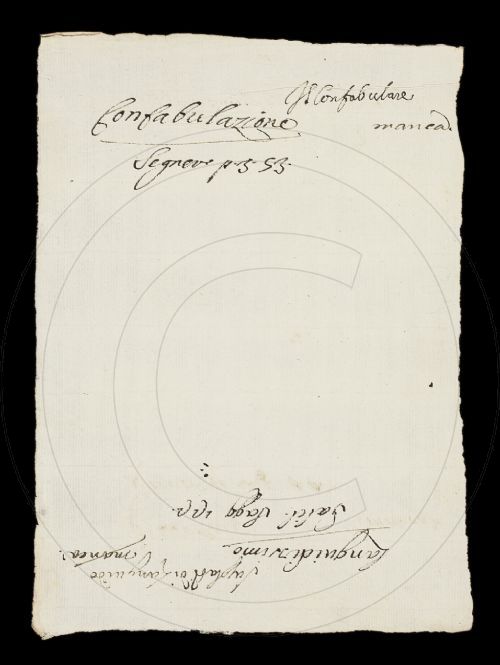 Il Confabulare
manca
Confabulazione
Segnere p. 3. 53.
Languidissimo
Salv.
Superl. di Languido
manca